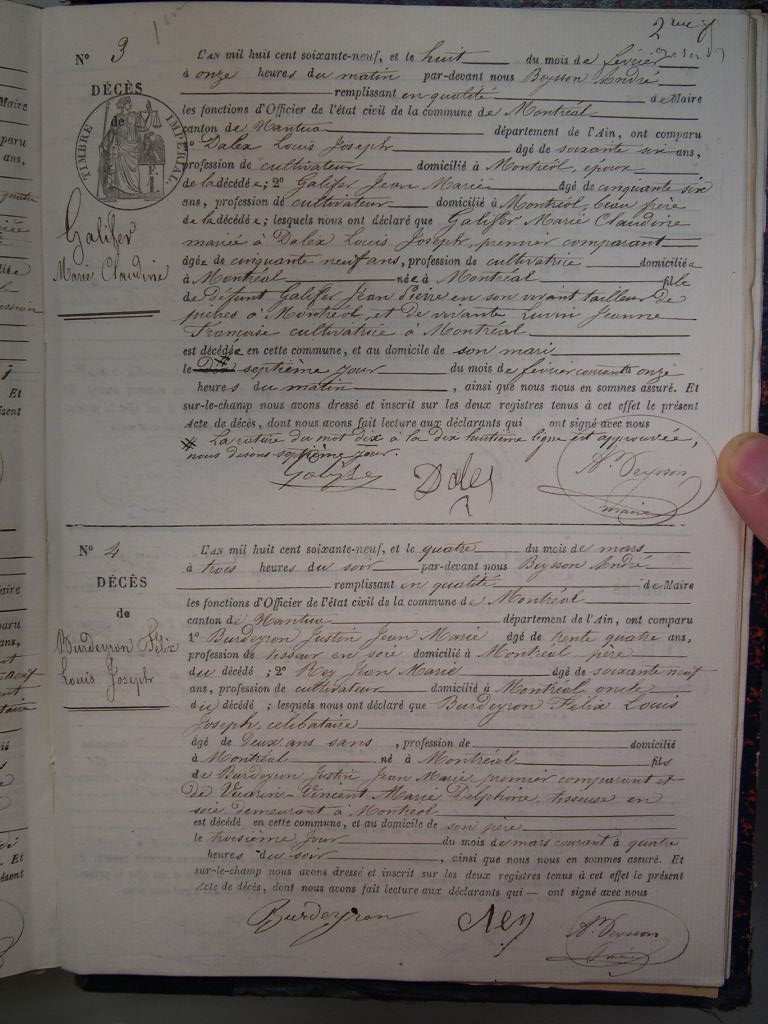 2me
N° 3
DÉCÈS
de
TIMBRE IMPÉRIAL
Galifer
Marie Claudine
L'AN mil huit cent soixante-neuf, et le huit du mois de février
à onze heures du matin par-devant nous Beysson André
remplissant en qualité de Maire
les fonctions d'Officier de l'état civil de la commune de Montréal
canton de Nantua département de l'Ain, ont comparu
1° Dalex Louis Joseph âgé de soixante six ans,
profession de cultivateur domicilié à Montréal, époux
de la décédée; 2° Galifer Jean Marie âgé de cinquante six
ans, profession de cultivateur domicilié à Montréal, beau frère
de la décédée; lesquels nous ont déclaré que Galifer Marie Claudine
mariée à Dalex Louis Joseph, premier comparant
âgée de cinquante neuf ans, profession de cultivatrice domiciliée
à Montréal née à Montréal fille
de défunt Galifer Jean Pierre en son vivant tailleur de
pierres à Montréal, et de vivante Jeanne
Françoise cultivatrice à Montréal
est décédée en cette commune, et au domicile de son mari
le Dix septième jour du mois de février courant à onze
heures du matin, ainsi que nous nous en sommes assuré. Et
sur-le-champ nous avons dressé et inscrit sur les deux registres tenus à cet effet le présent
Acte de décès, dont nous avons fait lecture aux déclarants qui ont signé avec nous
La rature du mot dix à la dix huitième ligne est approuvée,
nous disons septième jour.
Dalex
Ad. Beysson
maire
N° 4
DÉCÈS
de
Burdeyron Félix
Louis Joseph
L'AN mil huit cent soixante-neuf, et le quatre du mois de mars
à trois heures du soir par-devant nous Beysson André
remplissant en qualité de Maire
les fonctions d'Officier de l'état civil de la commune de Montréal
canton de Nantua département de l'Ain, ont comparu
1° Burdeyron Justin Jean Marie âgé de trente quatre ans,
profession de tisseur en soie domicilié à Montréal père
du décédé; 2° Rey Jean Marie âgé de soixante neuf
ans, profession de cultivateur domicilié à Montréal oncle
du décédé; lesquels nous ont déclaré que Burdeyron Félix Louis
Joseph, célibataire
âgé de Deux ans sans, profession de domicilié
à Montréal né à Montréal fils
de Burdeyron Justin Jean Marie premier comparant et
de Vincent Marie Delphine, tisseuse en
soie demeurant à Montréal
est décédé en cette commune, et au domicile de son père
le troisième jour du mois de mars courant à quatre
heures du soir, ainsi que nous nous en sommes assuré. Et
sur-le-champ nous avons dressé et inscrit sur les deux registres tenus à cet effet le présent
Acte de décès, dont nous avons fait lecture aux déclarants qui — ont signé avec nous
Burdeyron Rey Ad. Beysson